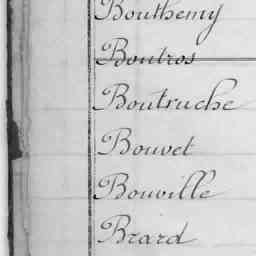 Bouthemy
Boutros
Boutruche
Bouvet
Bouville
Brard